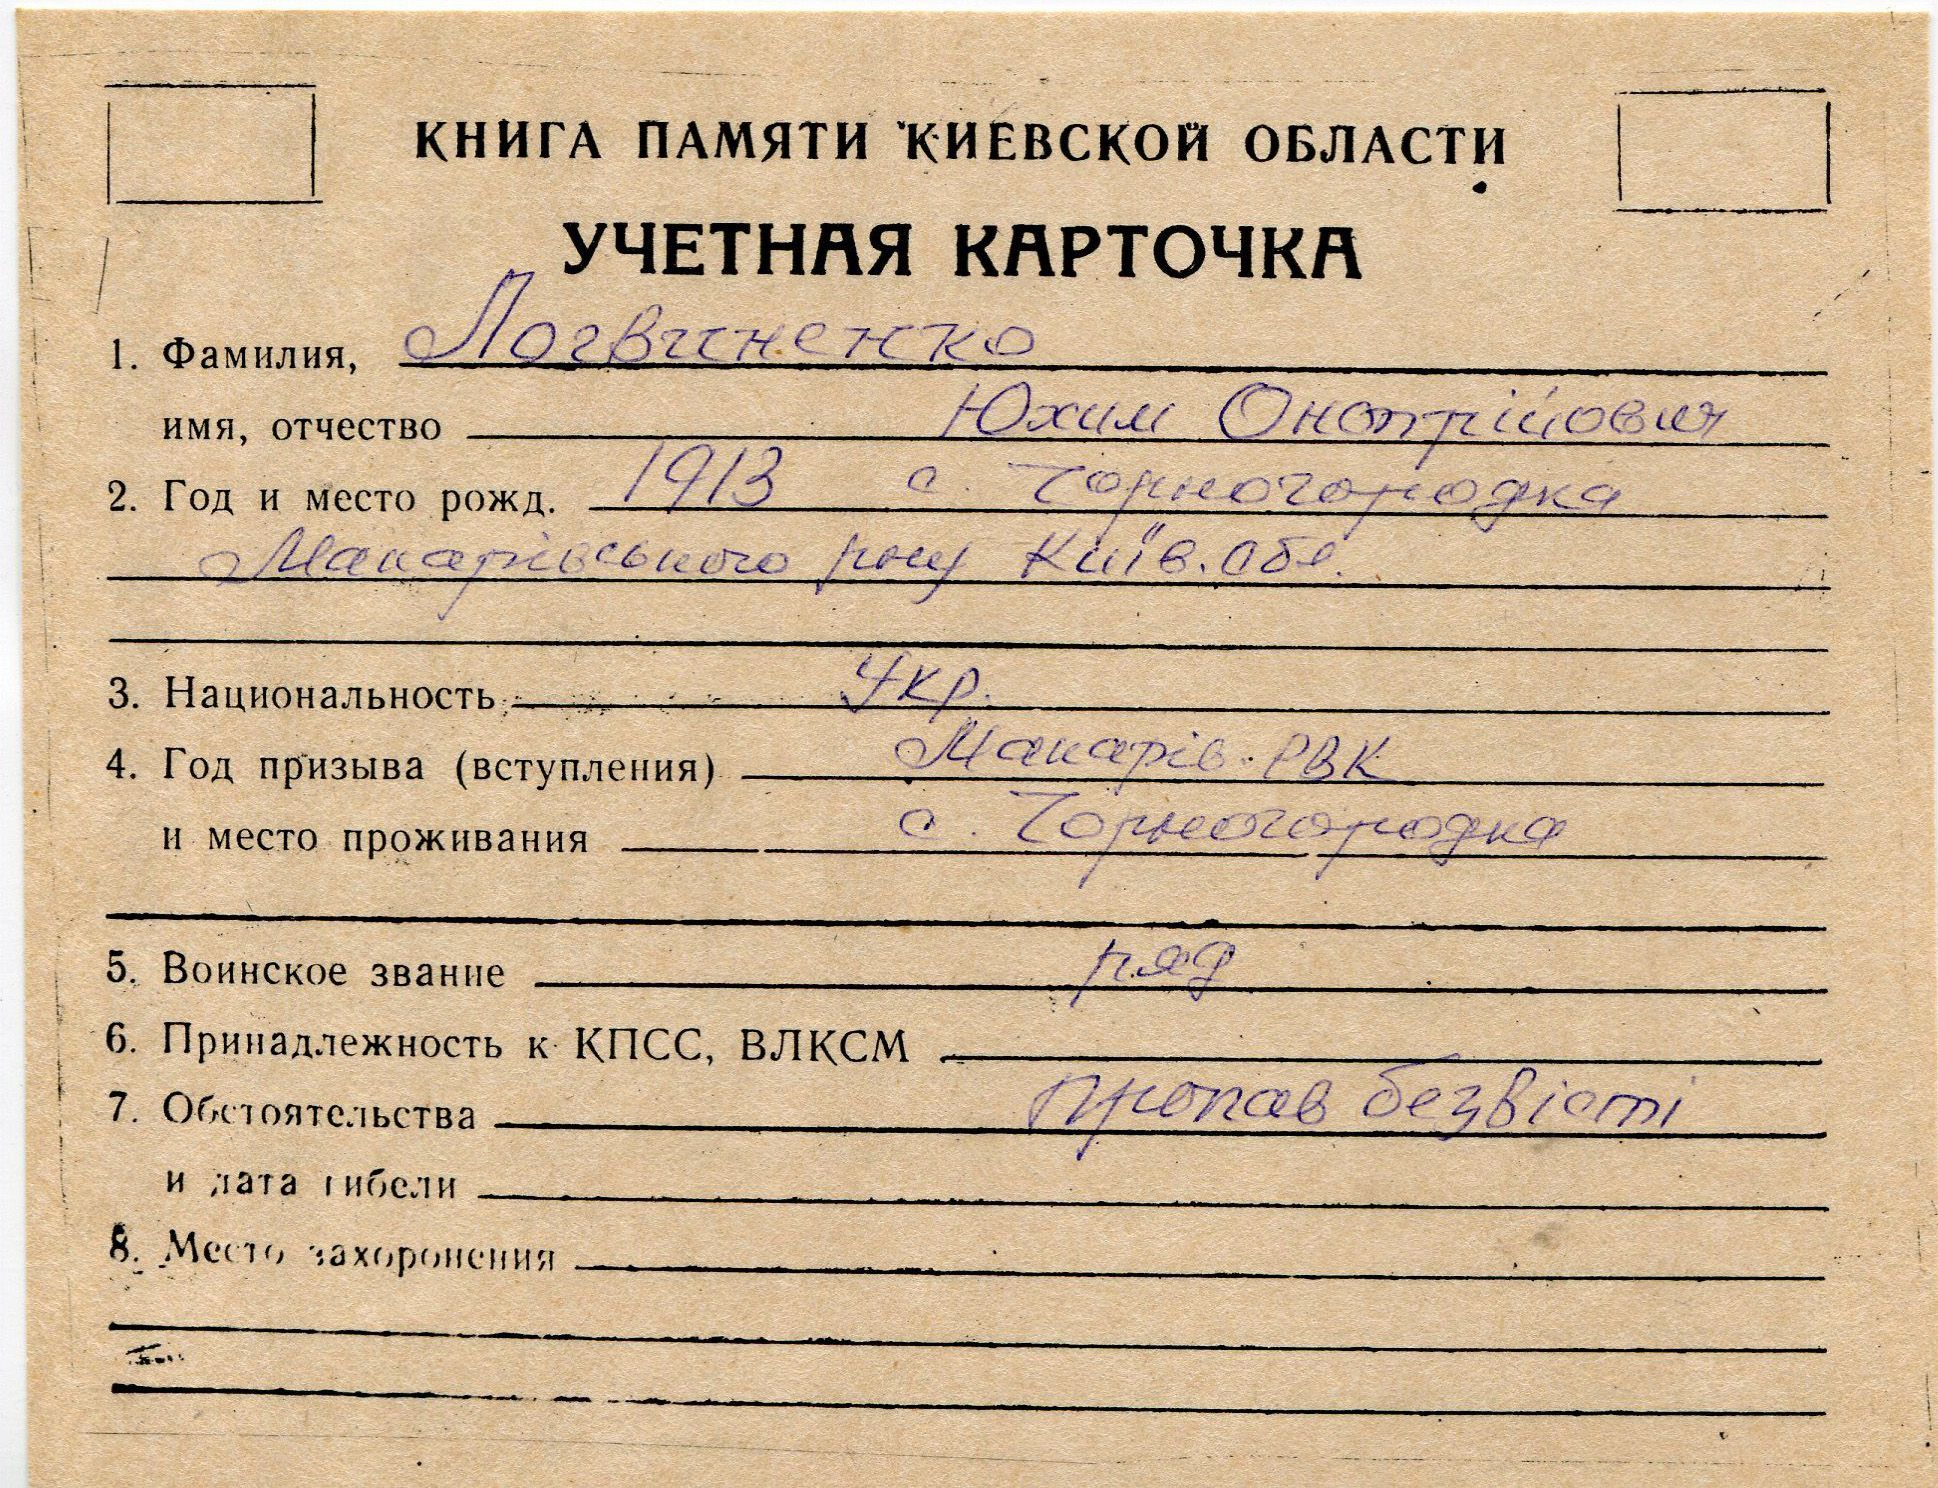 КНИГА ПАМЯТИ КИЕВСКОЙ ОБЛАСТИ
УЧЕТНАЯ КАРТОЧКА
1. Фамилия, Логвиненко
имя, отчество Юхим Онопрійович
2. Год и место рожд. 1913 с. Чорногородка
Макарівського р-ну Київ. обл.
3. Национальность Укр.
4. Год призыва (вступления) Макарів. РВК
и место проживания с. Чорногородка
5. Воинское звание ряд
6. Принадлежность к КПСС, ВЛКСМ
7. Обстоятельства пропав безвісті
и дата гибели
8. Место захоронения